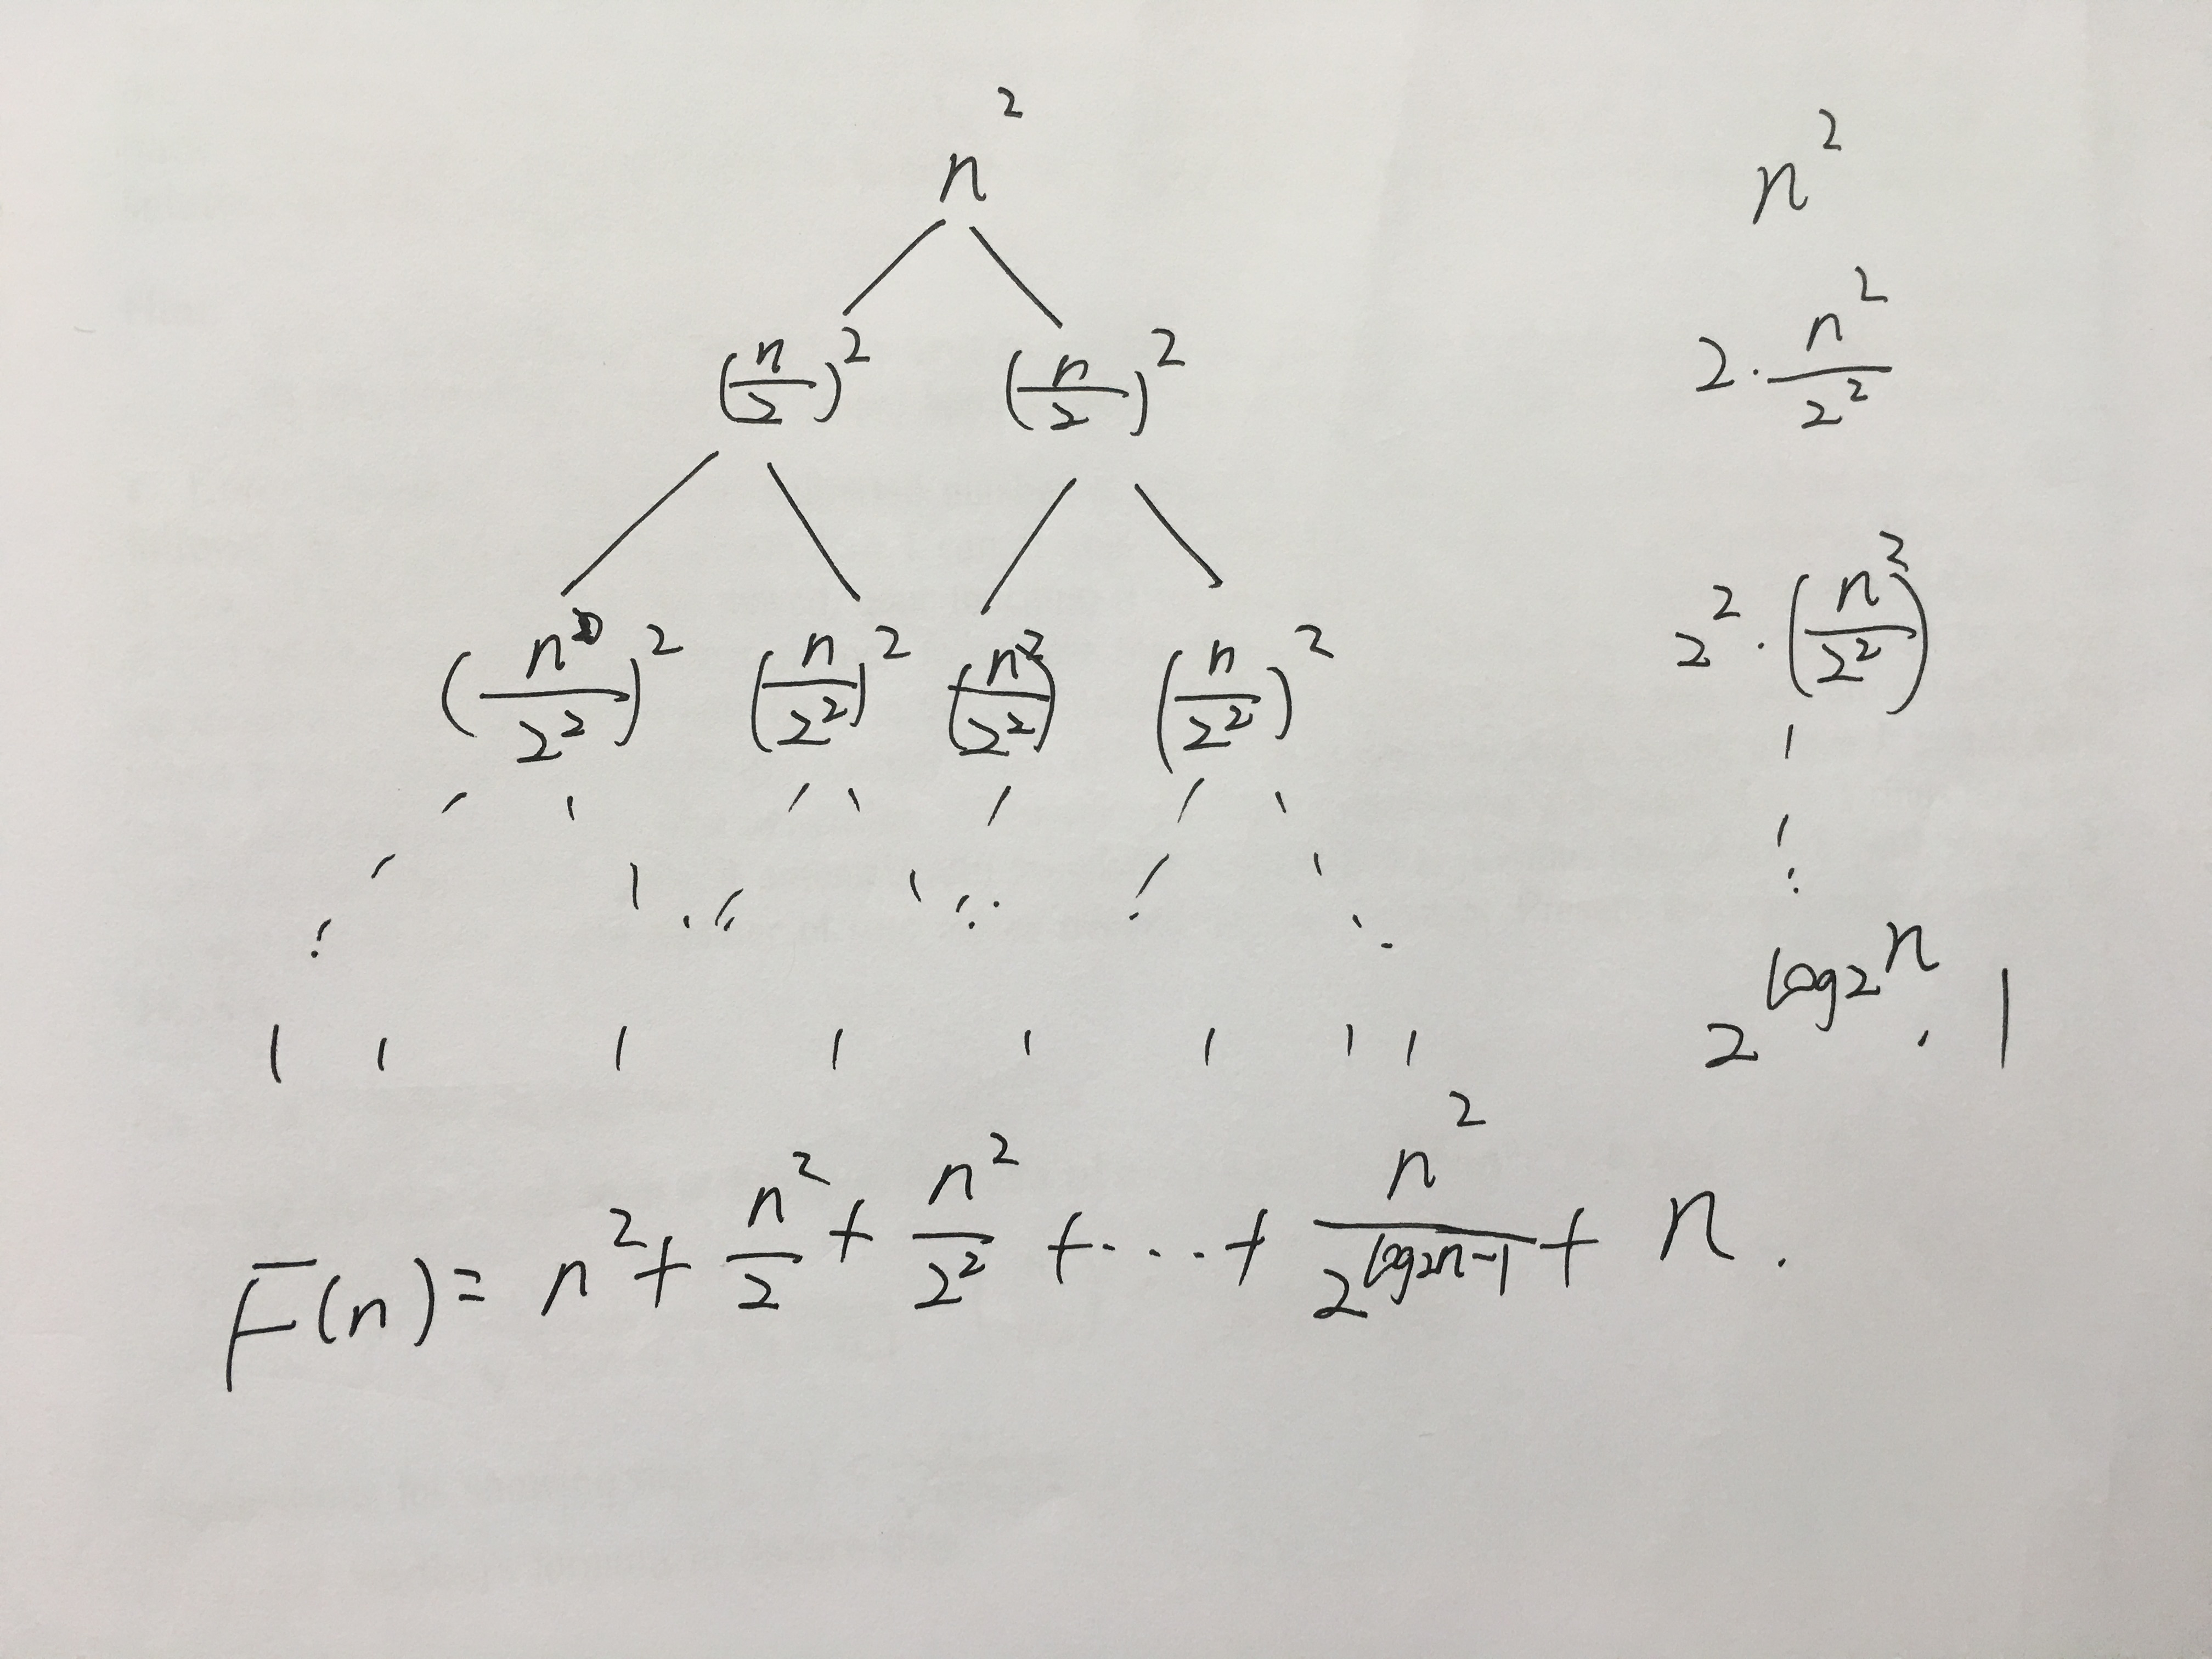 n² n²
(n/2)² (n/2)² 2·n²/2²
(n/2²)² (n/2²)² (n/2²)² (n/2²)² 2²·(n/2²)²
1 1 1 1 1 1 1 1 2^(log₂n)·1
F(n) = n² + n²/2 + n²/2² + ···· + n²/2^(log₂n-1) + n.